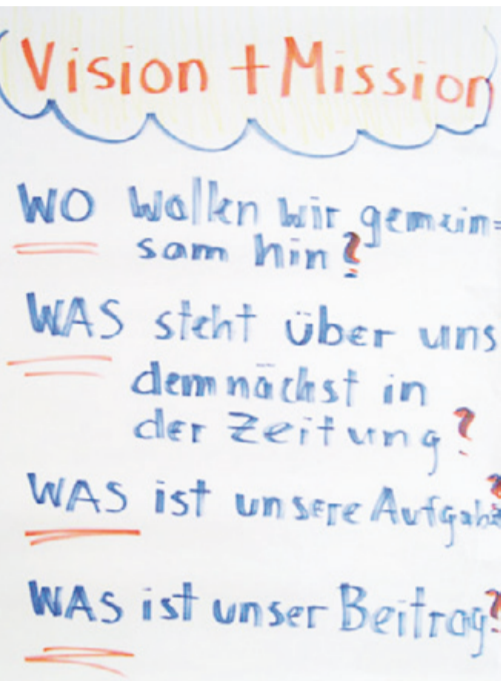 Vision + Mission
WO wollen wir gemein=
sam hin?
WAS steht über uns
demnächst in
der Zeitung?
WAS ist unsere Aufgabe?
WAS ist unser Beitrag?